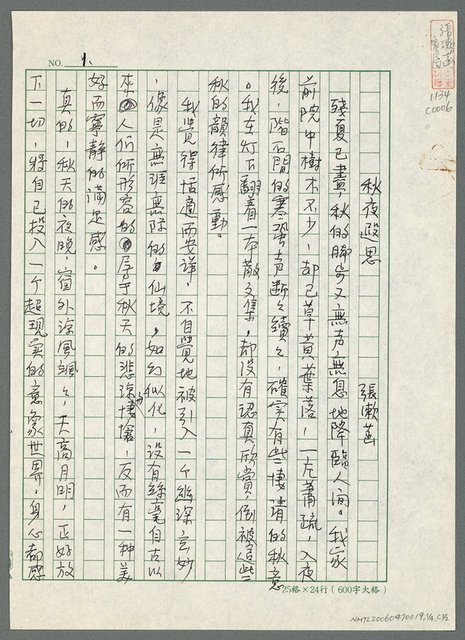 NO. 1.
1134
C0006
秋夜遐思
張漱菡
殘夏已盡,秋的腳步又無声無息地降臨人间。我家
前院中樹木不少,却已草黃葉落,一片蕭疏,入夜
後,階石間的寒蛩声断断續續,確实有些淒清的秋意
。我在灯下翻着一本散文集,却没有認真欣賞,倒被這些
秋的韻律所感動。
我覺得恬適而安詳,不自覺地被引入一个幽深玄妙
,像是無涯無際的仙境,如幻似化,没有絲毫自古以
來人们所形容的屬于秋天的悲深悽愴,反而有一种美
好而寧静的滿足感。
真的,秋天的夜晚,窗外涼風颯颯,天高月明,正好放
下一切,將自己投入一个超現实的意象世界,身心都感
25格×24行(600字大格)
NMTL20060470019,1/4,C1/2